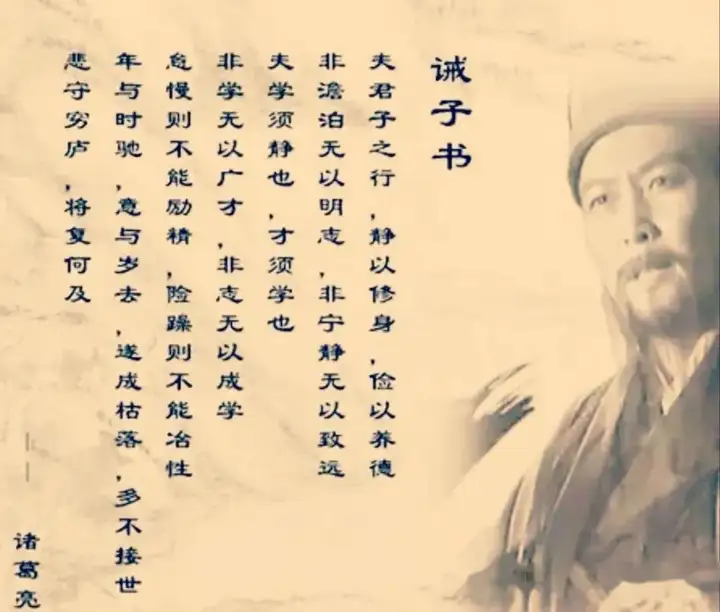 诫子书
夫君子之行,静以修身,俭以养德
非澹泊无以明志,非宁静无以致远
夫学须静也,才须学也
非学无以广才,非志无以成学
怠慢则不能励精,险躁则不能冶性
年与时驰,意与岁去,遂成枯落,多不接世
悲守穷庐,将复何及
——诸葛亮